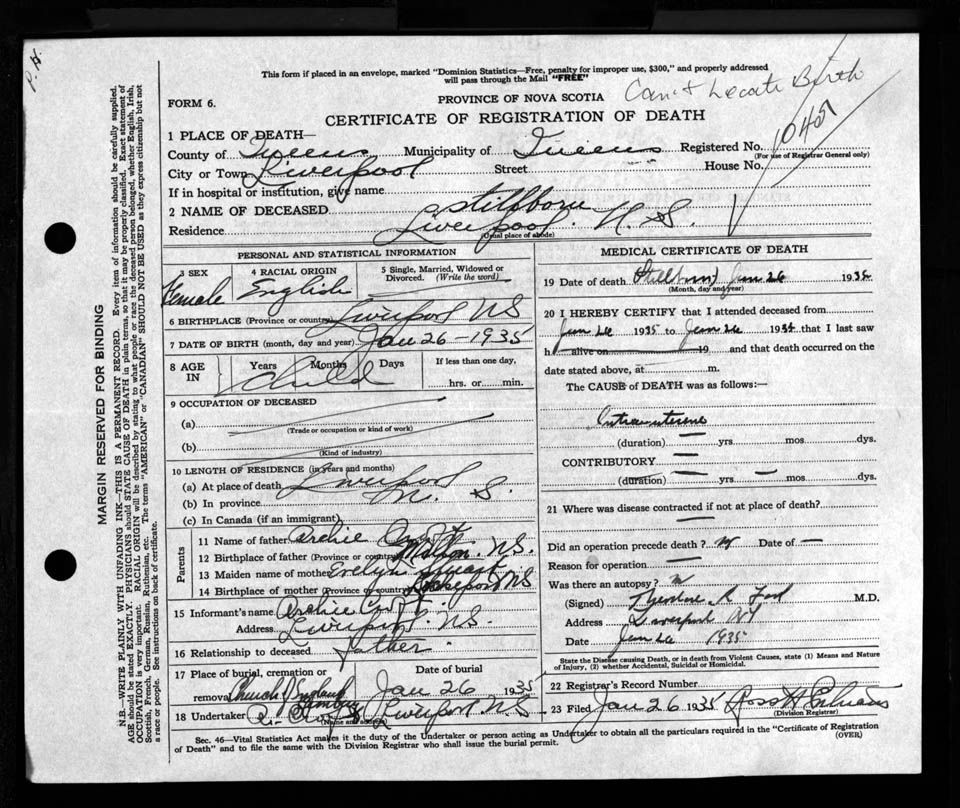 P. H.
This form if placed in an envelope, marked "Dominion Statistics—Free, penalty for improper use, $300," and properly addressed
will pass through the Mail "FREE"
FORM 6.
PROVINCE OF NOVA SCOTIA
Can't Locate Birth
CERTIFICATE OF REGISTRATION OF DEATH
1 PLACE OF DEATH—
County of Queens Municipality of Queens Registered No.
(For use of Registrar General only)
City or Town Liverpool Street House No.
If in hospital or institution, give name
2 NAME OF DECEASED Stillborn
Residence Liverpool N. S.
(Usual place of abode)
PERSONAL AND STATISTICAL INFORMATION
3 SEX 4 RACIAL ORIGIN 5 Single, Married, Widowed or
Divorced. (Write the word)
Female English
6 BIRTHPLACE (Province or country) Liverpool NS
7 DATE OF BIRTH (month, day and year) Jan 26-1935
8 AGE IN Years Months Days If less than one day,
Child hrs. or min.
9 OCCUPATION OF DECEASED
(a)
(Trade or occupation or kind of work)
(b)
(Kind of industry)
10 LENGTH OF RESIDENCE (in years and months)
(a) At place of death Liverpool
(b) In province N. S.
(c) In Canada (if an immigrant)
Parents
11 Name of father Archie
12 Birthplace of father (Province or country) Milton. NS.
13 Maiden name of mother Evelyn
14 Birthplace of mother (Province or country) NS
15 Informant's name Archie
Address Liverpool. NS.
16 Relationship to deceased father
17 Place of burial, cremation or Date of burial
removal Church of England Jan 26 1935
18 Undertaker Liverpool NS
(Name and address)
MEDICAL CERTIFICATE OF DEATH
19 Date of death (Stillborn) Jan 26 1935
(Month, day and year)
20 I HEREBY CERTIFY that I attended deceased from
Jan 26 1935 to Jan 26 1935 that I last saw
h alive on 19 and that death occurred on the
date stated above, at m.
The CAUSE of DEATH was as follows:—
Intrauterine
(duration) yrs. mos. dys.
CONTRIBUTORY
(duration) yrs. mos. dys.
21 Where was disease contracted if not at place of death?
Did an operation precede death? no Date of —
Reason for operation
Was there an autopsy? n
(Signed) Theodore R Ford M.D.
Address Liverpool NS
Date Jan 26 1935
State the Disease causing Death, or in death from Violent Causes, state (1) Means and Nature
of Injury, (2) whether Accidental, Suicidal or Homicidal.
22 Registrar's Record Number
23 Filed Jan 26 1935 Ross H
(Division Registrar)
Sec. 46—Vital Statistics Act makes it the duty of the Undertaker or person acting as Undertaker to obtain all the particulars required in the "Certificate of Registration
of Death" and to file the same with the Division Registrar who shall issue the burial permit.
(OVER)
MARGIN RESERVED FOR BINDING
N.B.—WRITE PLAINLY WITH UNFADING INK—THIS IS A PERMANENT RECORD. Every item of information should be carefully supplied.
AGE should be stated EXACTLY. PHYSICIANS should STATE CAUSE OF DEATH in plain terms, so that it may be properly classified. Exact statement of
OCCUPATION is very important. RACIAL ORIGIN will be described by stating to what people or race the deceased person belonged, whether English, Irish,
Scottish, French, German, Russian, Ruthenian, etc. The terms "AMERICAN" or "CANADIAN" SHOULD NOT BE USED as they express citizenship but not
a race or people. See instructions on back of certificate.